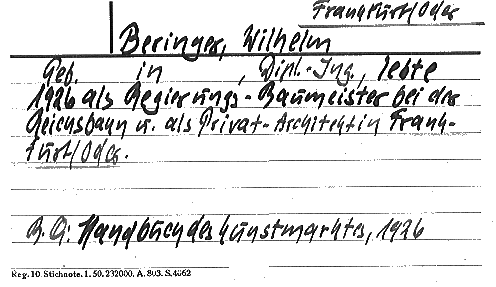 Frankfurt/Oder
Beringer, Wilhelm
Geb. in , Dipl.-Ing., lebte
1926 als Regierungs-Baumeister bei der
Reichsbahn u. als Privat-Architekt in Frank-
furt/Oder.
B.Q: Handbuch des Kunstmarktes, 1926
Reg. 10. Stichnote. I. 50. 232000. A. 803. S.4062